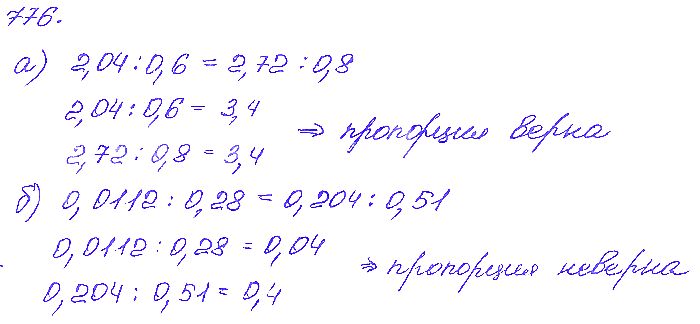 776.
а) 2,04 : 0,6 = 2,72 : 0,8
2,04 : 0,6 = 3,4
⇒ пропорция верна
2,72 : 0,8 = 3,4
б) 0,0112 : 0,28 = 0,204 : 0,51
0,0112 : 0,28 = 0,04
⇒ пропорция неверна
0,204 : 0,51 = 0,4